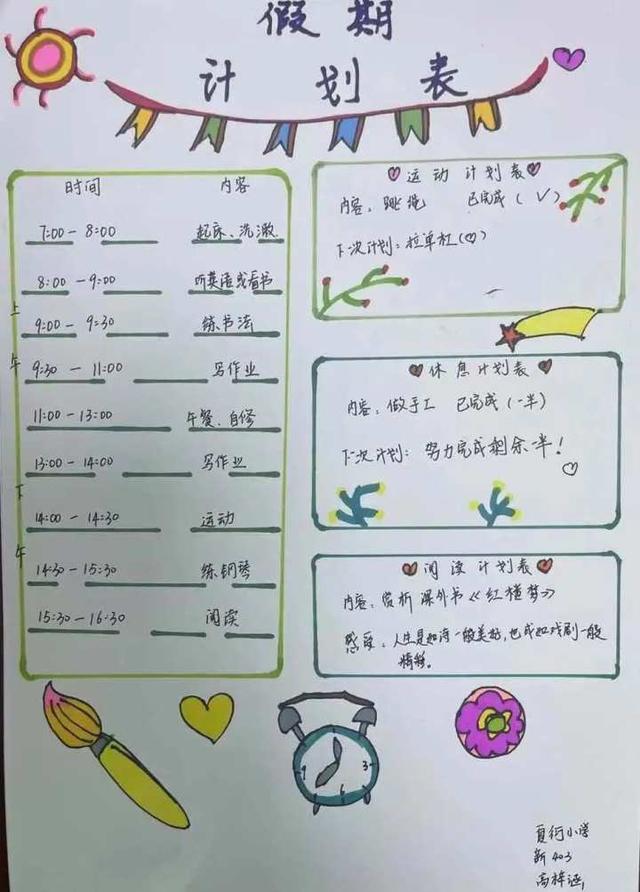 假期
计划表
时间 内容
7:00 - 8:00 起床、洗漱
8:00 - 9:00 听英语或看书
9:00 - 9:30 练书法
9:30 - 11:00 写作业
11:00 - 13:00 午餐、自修
13:00 - 14:00 写作业
14:00 - 14:30 运动
14:30 - 15:30 练钢琴
15:30 - 16:30 阅读
上
午
下
午
运动计划表
内容：跳绳 已完成（√）
下次计划：拉单杠（♡）
休息计划表
内容：做手工 已完成（一半）
下次计划：努力完成剩余一半！
阅读计划表
内容：赏析课外书《红楼梦》
感受：人生是如诗一般美好，也或如戏剧一般
精彩。
9 3
6
小学
新403
高梓涵